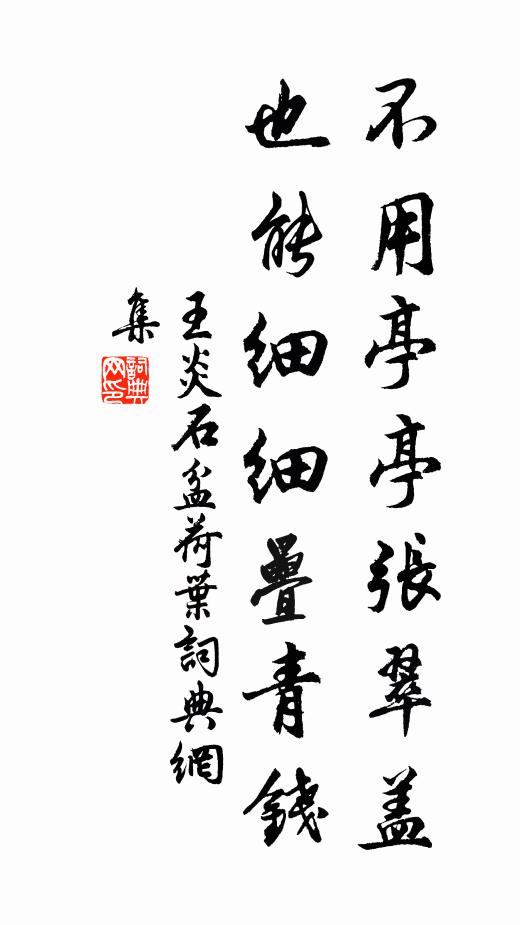 不用亭亭張翠盖
也能细细疊青錢
王炎石盆荷葉詞典網
集
詞典
网印